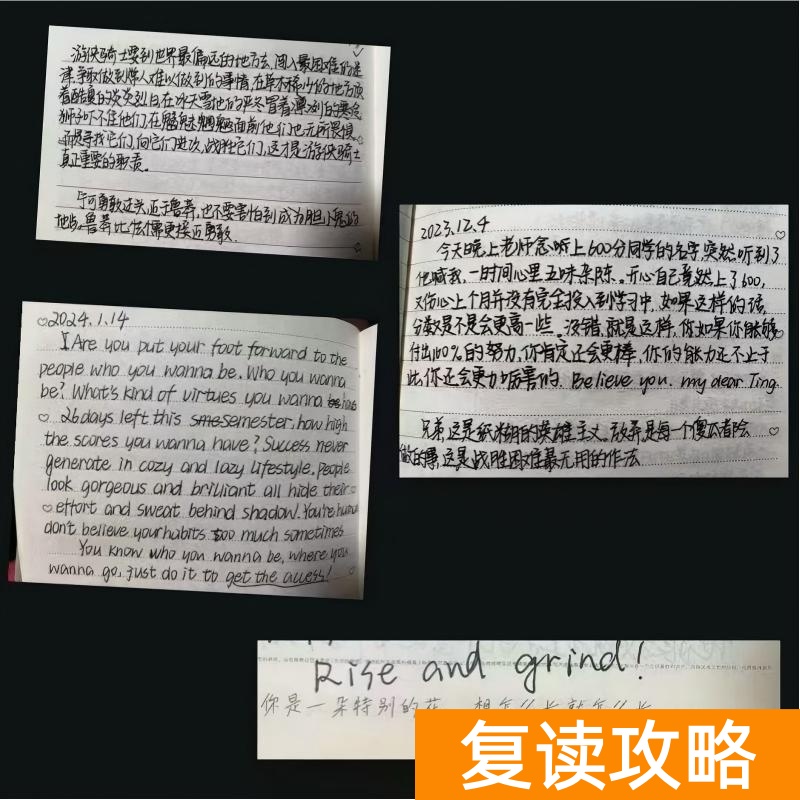 游侠骑士要到世界最偏远的地方去,闯入最困难的迷
津,争取做到烊人难以做到的事情,在草木稀少的地方顶
着酷夏的炎炎烈日,在冰天雪地的严冬冒着凛冽的寒风
狮子吓不住他们,在魑魅魍魉面前他们也无所畏惧
而是寻找它们,向它们进攻,战胜它们,这才是游侠骑士
真正重要的职责。
宁可勇敢过头,近于鲁莽,也不要害怕到成为胆小鬼的
地步,鲁莽比怯懦更接近勇敢.
2023.12.4
今天晚上老师念班上600分同学的名字,突然听到了
他喊我,一时间心里五味杂陈。开心自己竟然上了600,
又伤心上个月并没有完全投入到学习中,如果这样的话,
分数是不是会更高一些。没错,就是这样,你如果你能够
付出100%的努力,你肯定还会更棒,你的能力还不止于
此,你还会更加厉害的. Believe you. my dear Ting.
兄弟,这是纸糊的英雄主义。放弃是每一个傻瓜都会
做的事,这是战胜困难最无用的作法
2024.1.14
Are you put your foot forward to the
people who you wanna be. Who you wanna
be? What's kind of virtues you wanna have
26days left this semester, how high
the scores you wanna have? Success never
generate in cozy and lazy lifestyle. People
look gorgeous and brilliant all hide their
effort and sweat behind shadow. You're human
don't believe your habits too much sometimes
You know who you wanna be, where you
wanna go, just do it to get the access!
Rise and grind!
你是一朵特别的花,想怎么长就怎么长
复读攻略